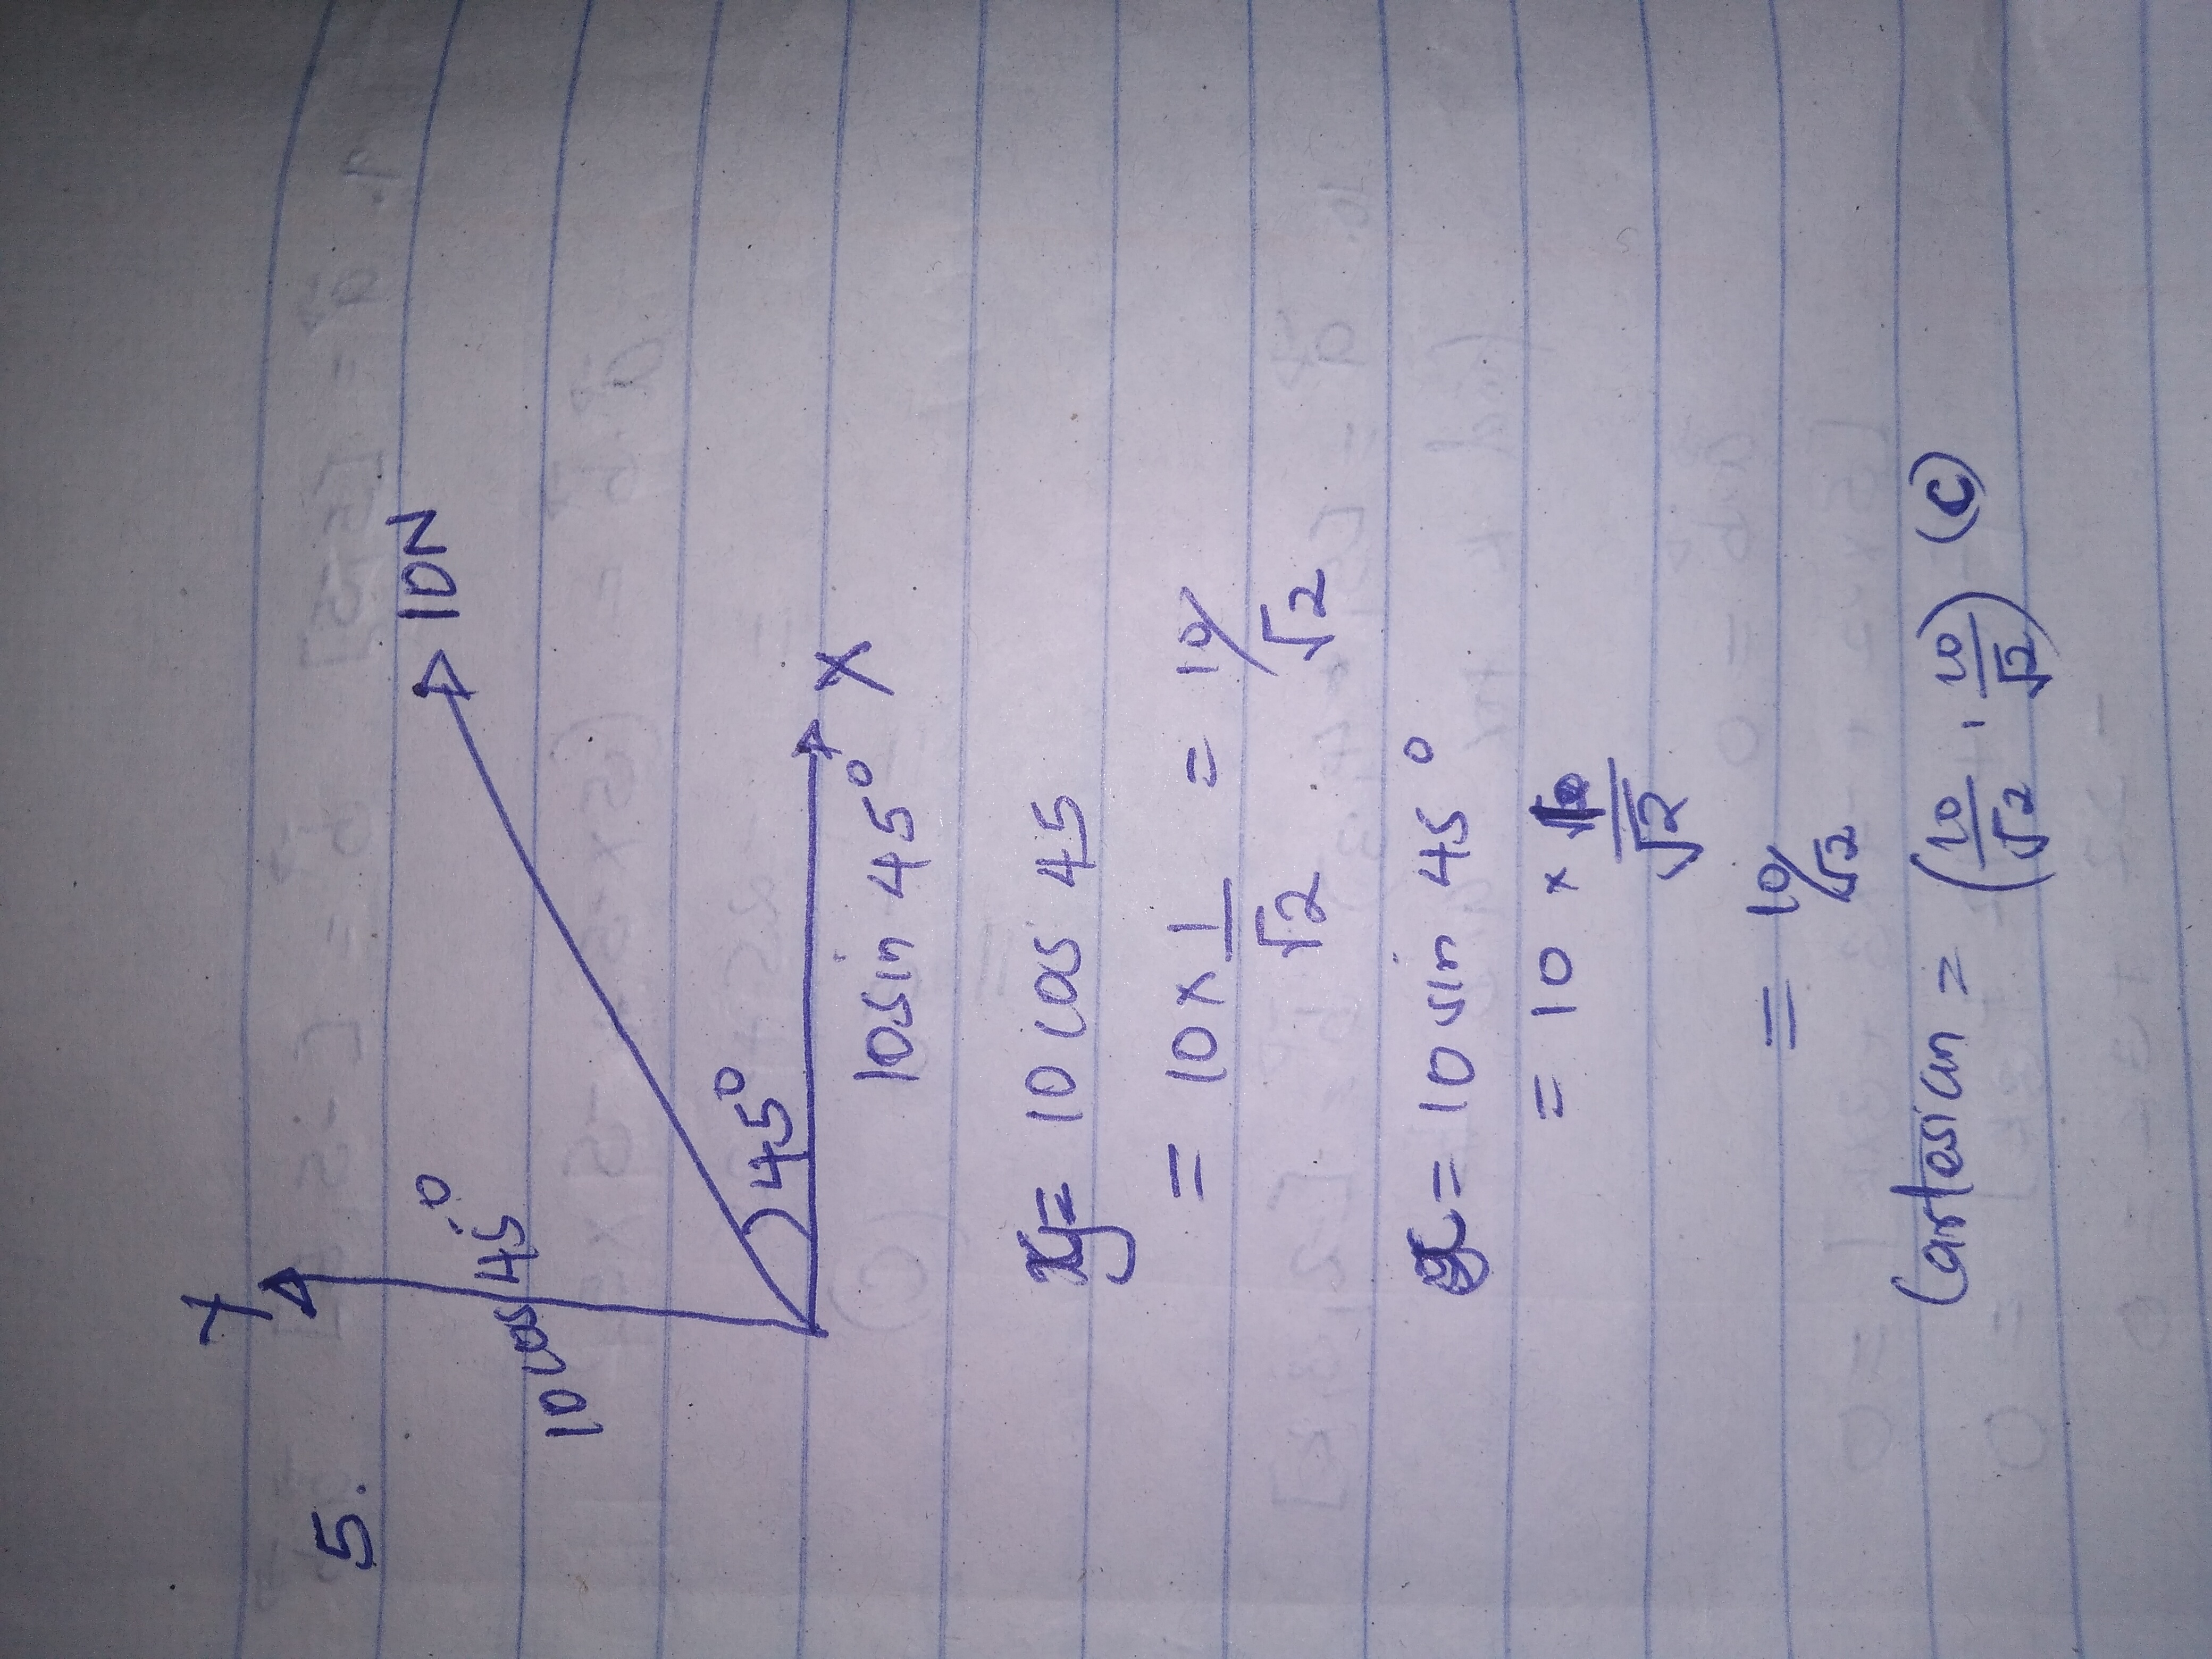 5.
Y
10 cos 45°
10N
45°
X
10sin 45°
y= 10 cos 45
= 10 × 1/√2 = 10/√2
x = 10 sin 45°
= 10 × 1/√2
= 10/√2
Cartesian = (10/√2, 10/√2) (C)